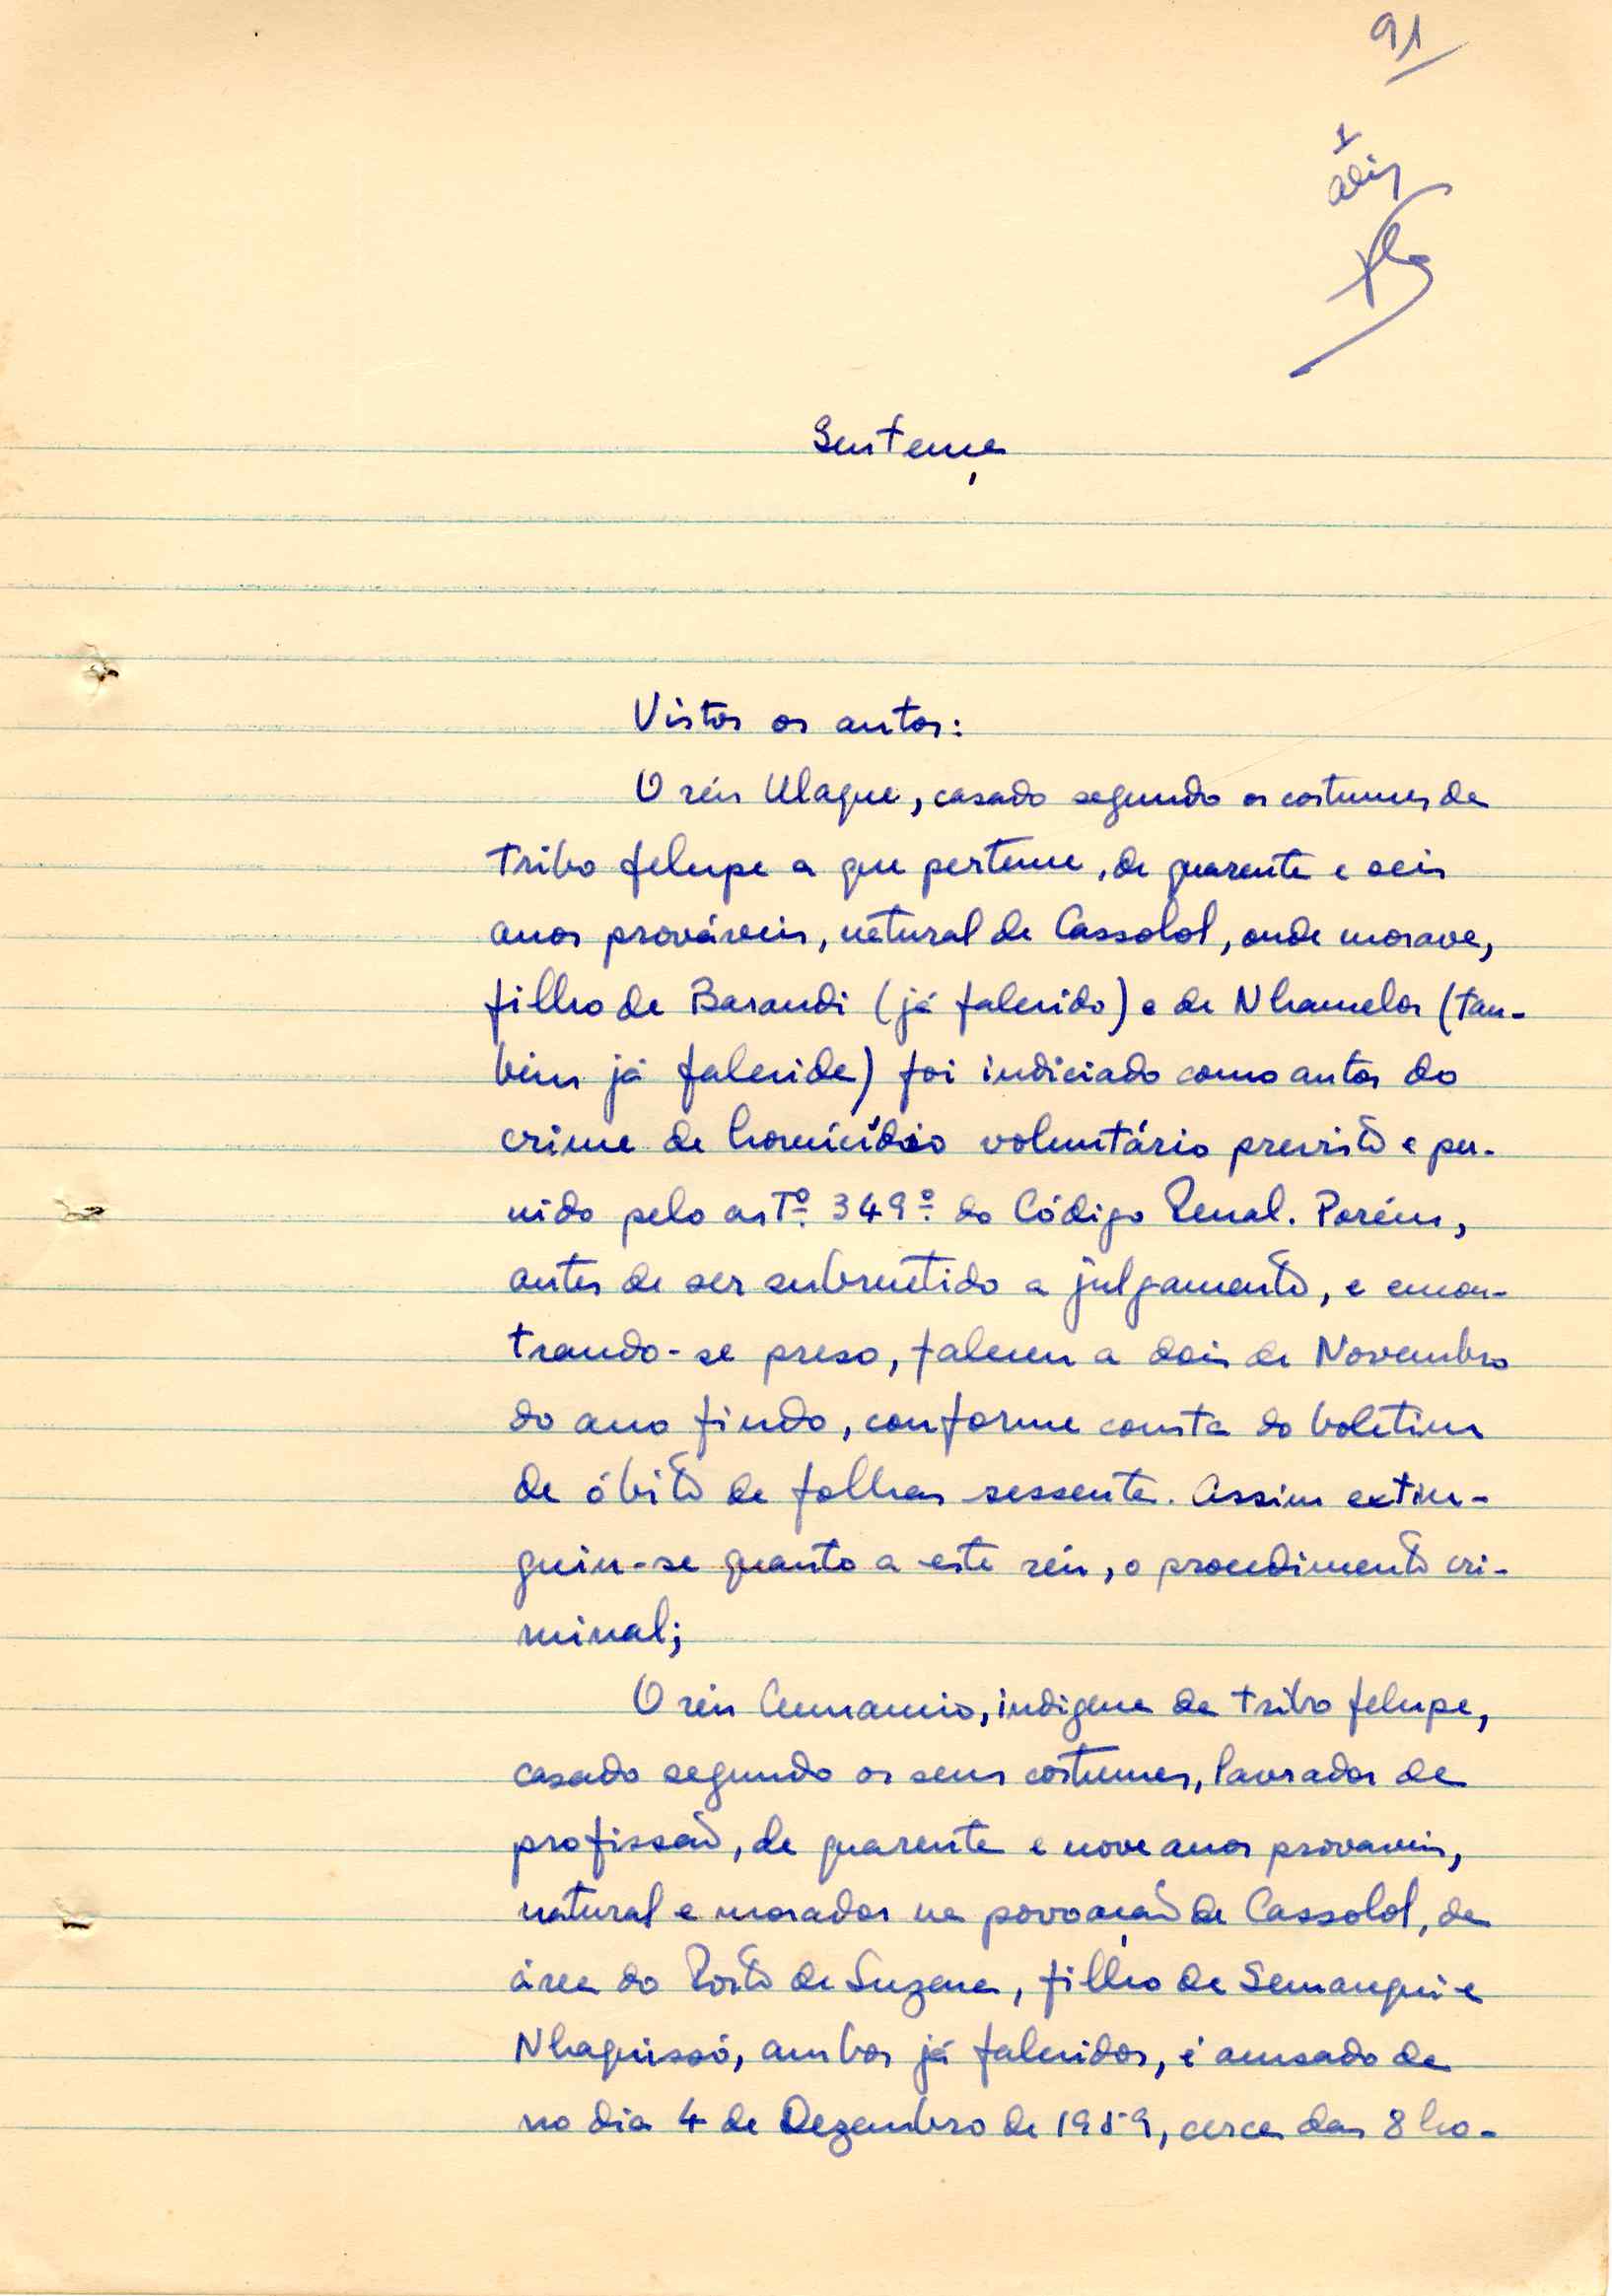 91
Sentença
Vistos os autos:
O réu Ulaque, casado segundo os costumes da
tribo felupe a que pertence, de quarenta e seis
anos prováveis, natural de Cassolol, onde morava,
filho de Barandi (já falecido) e de Nhamelor (tam-
bém já falecida) foi indiciado como autor do
crime de homicídio voluntário previsto e pu-
nido pelo artº. 349º. do Código Penal. Porém,
antes de ser submetido a julgamento, e encon-
trando-se preso, faleceu a dois de Novembro
do ano findo, conforme consta do boletim
de óbito de folhas sessenta. Assim extin-
guiu-se quanto a este réu, o procedimento cri-
minal;
O réu indigena da tribo felupe,
casado segundo os seus costumes, lavrador de
profissão, de quarenta e nove anos provaveis,
natural e morador na povoação de Cassolol, da
área do Posto de Suzana, filho de Semangui e
Nhaguissó, ambos já falecidos, é acusado de
no dia 4 de Dezembro de 1959, cerca das 8 ho-